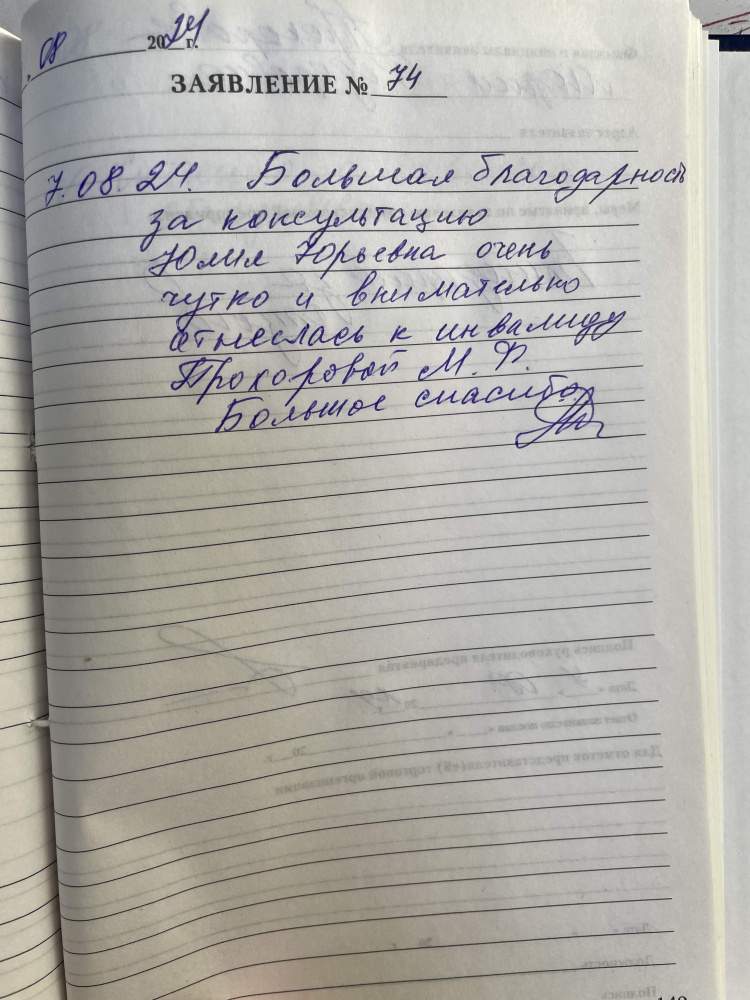 08 2024 г.
ЗАЯВЛЕНИЕ № 74
7.08.24. Большая благодарность
за консультацию
Юлия Юрьевна очень
чутко и внимательно
отнеслась к инвалиду
Прохоровой М. Ф.
Большое спасибо.